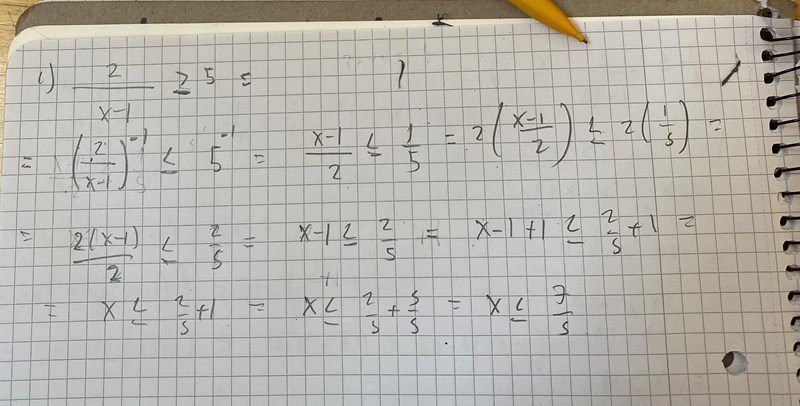 1) 2/(x-1) ≥ 5 =
= (2/(x-1))^-1 ≤ 5^-1 = (x-1)/2 ≤ 1/5 = 2((x-1)/2) ≤ 2(1/5) =
= 2(x-1)/2 ≤ 2/5 = x-1 ≤ 2/5 = x-1+1 ≤ 2/5+1 =
= x ≤ 2/5+1 = x ≤ 2/5+5/5 = x ≤ 7/5